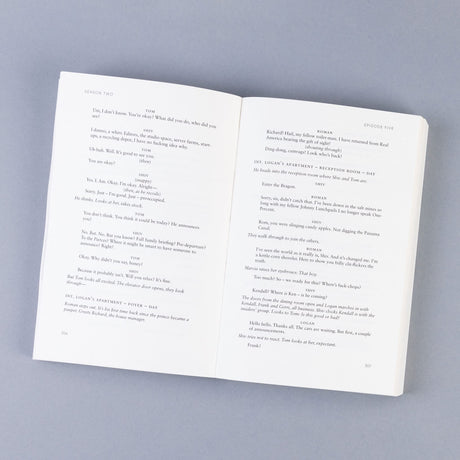 SEASON TWO
TOM
Um, I don't know. You're okay? What did you do, who did you see?
SHIV
I dunno, a wheel. Editors, the studio space, server farms, start-ups, a recycling depot, I have no fucking idea why.
TOM
Uh-huh. Well. It's good to see you.
(then)
You are okay?
SHIV
(snappy)
Yes. I. Am. Okay. I'm okay. Alright —
(then, as he recoils)
Sorry. Just – I'm good. Just – preoccupied.
He thinks. Looks at her, takes stock.
TOM
You don't think. You think it could be today? He announces you?
SHIV
No. But. No. But you know? Full family briefing? Pre-departure? To the Pierces? When it might be smart to have someone to announce?
TOM
Okay. Why didn't you say, honey?
SHIV
Because it probably isn't. Will you relax? It's fine.
But Tom looks all excited. The elevator door opens, they look through –
INT. LOGAN'S APARTMENT – FOYER – DAY
Roman steps out. It's his first time back since the prince became a
Greets Richard, the house manager.
EPISODE FIVE
ROMAN
Richard! Hail, my fellow toiler-man, I have returned from Real America bearing the gift of sight!
(shouting through)
Ding-dong, cuntbags! Look who's back?
INT. LOGAN'S APARTMENT – RECEPTION ROOM – DAY
He heads into the reception room where Shiv and Tom are.
SHIV
Enter the Dragon.
ROMAN
Sorry, sis, didn't catch that. I've been down in the salt mines so long with my fellow Johnny Lunchpails I no longer speak One Percent.
SHIV
Rom, you were slinging candy apples. Not digging the Panama Canal.
They walk through to join the others.
ROMAN
I've seen the world as it really is, Shiv. And it's changed me. I'm a kettle corn cheerio. Here to show you hills city-fuckers the truth.
Marcia raises her eyebrows. That boy.
SHIV
Too much? So – we ready for this? Where's fuck-chops?
ROMAN
Kendall? Where is Ken – is he coming?
The doors from the dining room open and Logan marches in with Kendall, Frank and Gerri, all business. Shiv clocks Kendall is with the insiders' group. Looks to Tom: Is this good or bad?
LOGAN
Hello hello. Thanks all. The cars are waiting. But first, a couple of announcements.
Shiv tries not to react. Tom looks at her, expectant.
Frank?